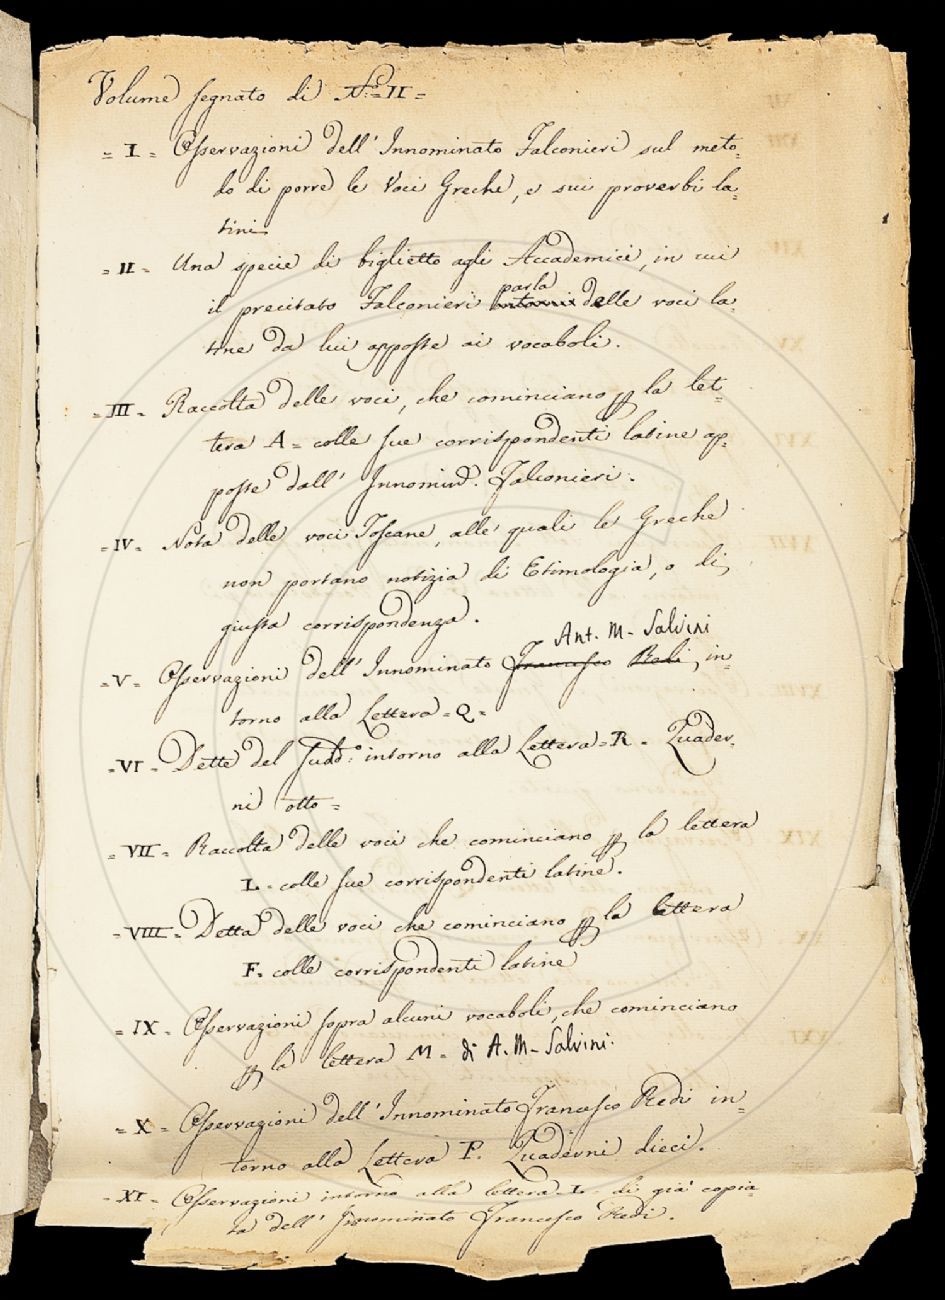 Volume segnato di N.º = II =
= I = Osservazioni dell' Innominato Falconieri sul meto=
do di porre le Voci Greche, e sui proverbi la=
tini
= II = Una specie di biglietto agli Accademici, in cui
parla
il precitato Falconieri intorni delle voci la=
tine da lui apposte ai vocaboli.
= III = Raccolta delle voci, che cominciano p la let=
tera A = colle sue corrispondenti latine ap=
poste dall' Innomin.º Falconieri.
= IV = Nota delle voci Toscane, alle quali le Greche
non portano notizia di Etimologia, o di
giusta corrispondenza.
Ant. M. Salvini
= V = Osservazioni dell' Innominato Francesco Redi, in=
torno alla Lettera = Q =
= VI = Dette del Sudd.º intorno alla Lettera = R = Quader=
ni otto =
= VII = Raccolta delle voci che cominciano p la lettera
L = colle sue corrispondenti latine.
= VIII = Detta delle voci che cominciano p la lettera
F. colle corrispondenti latine
= IX = Osservazioni sopra alcuni vocaboli, che cominciano
p la lettera M = di A. M. Salvini.
= X = Osservazioni dell' Innominato Francesco Redi in=
torno alla Lettera P. Quaderni dieci.
= XI = Osservazioni intorno alla lettera = L = di già copia=
ta dell' Innominato Francesco Redi.